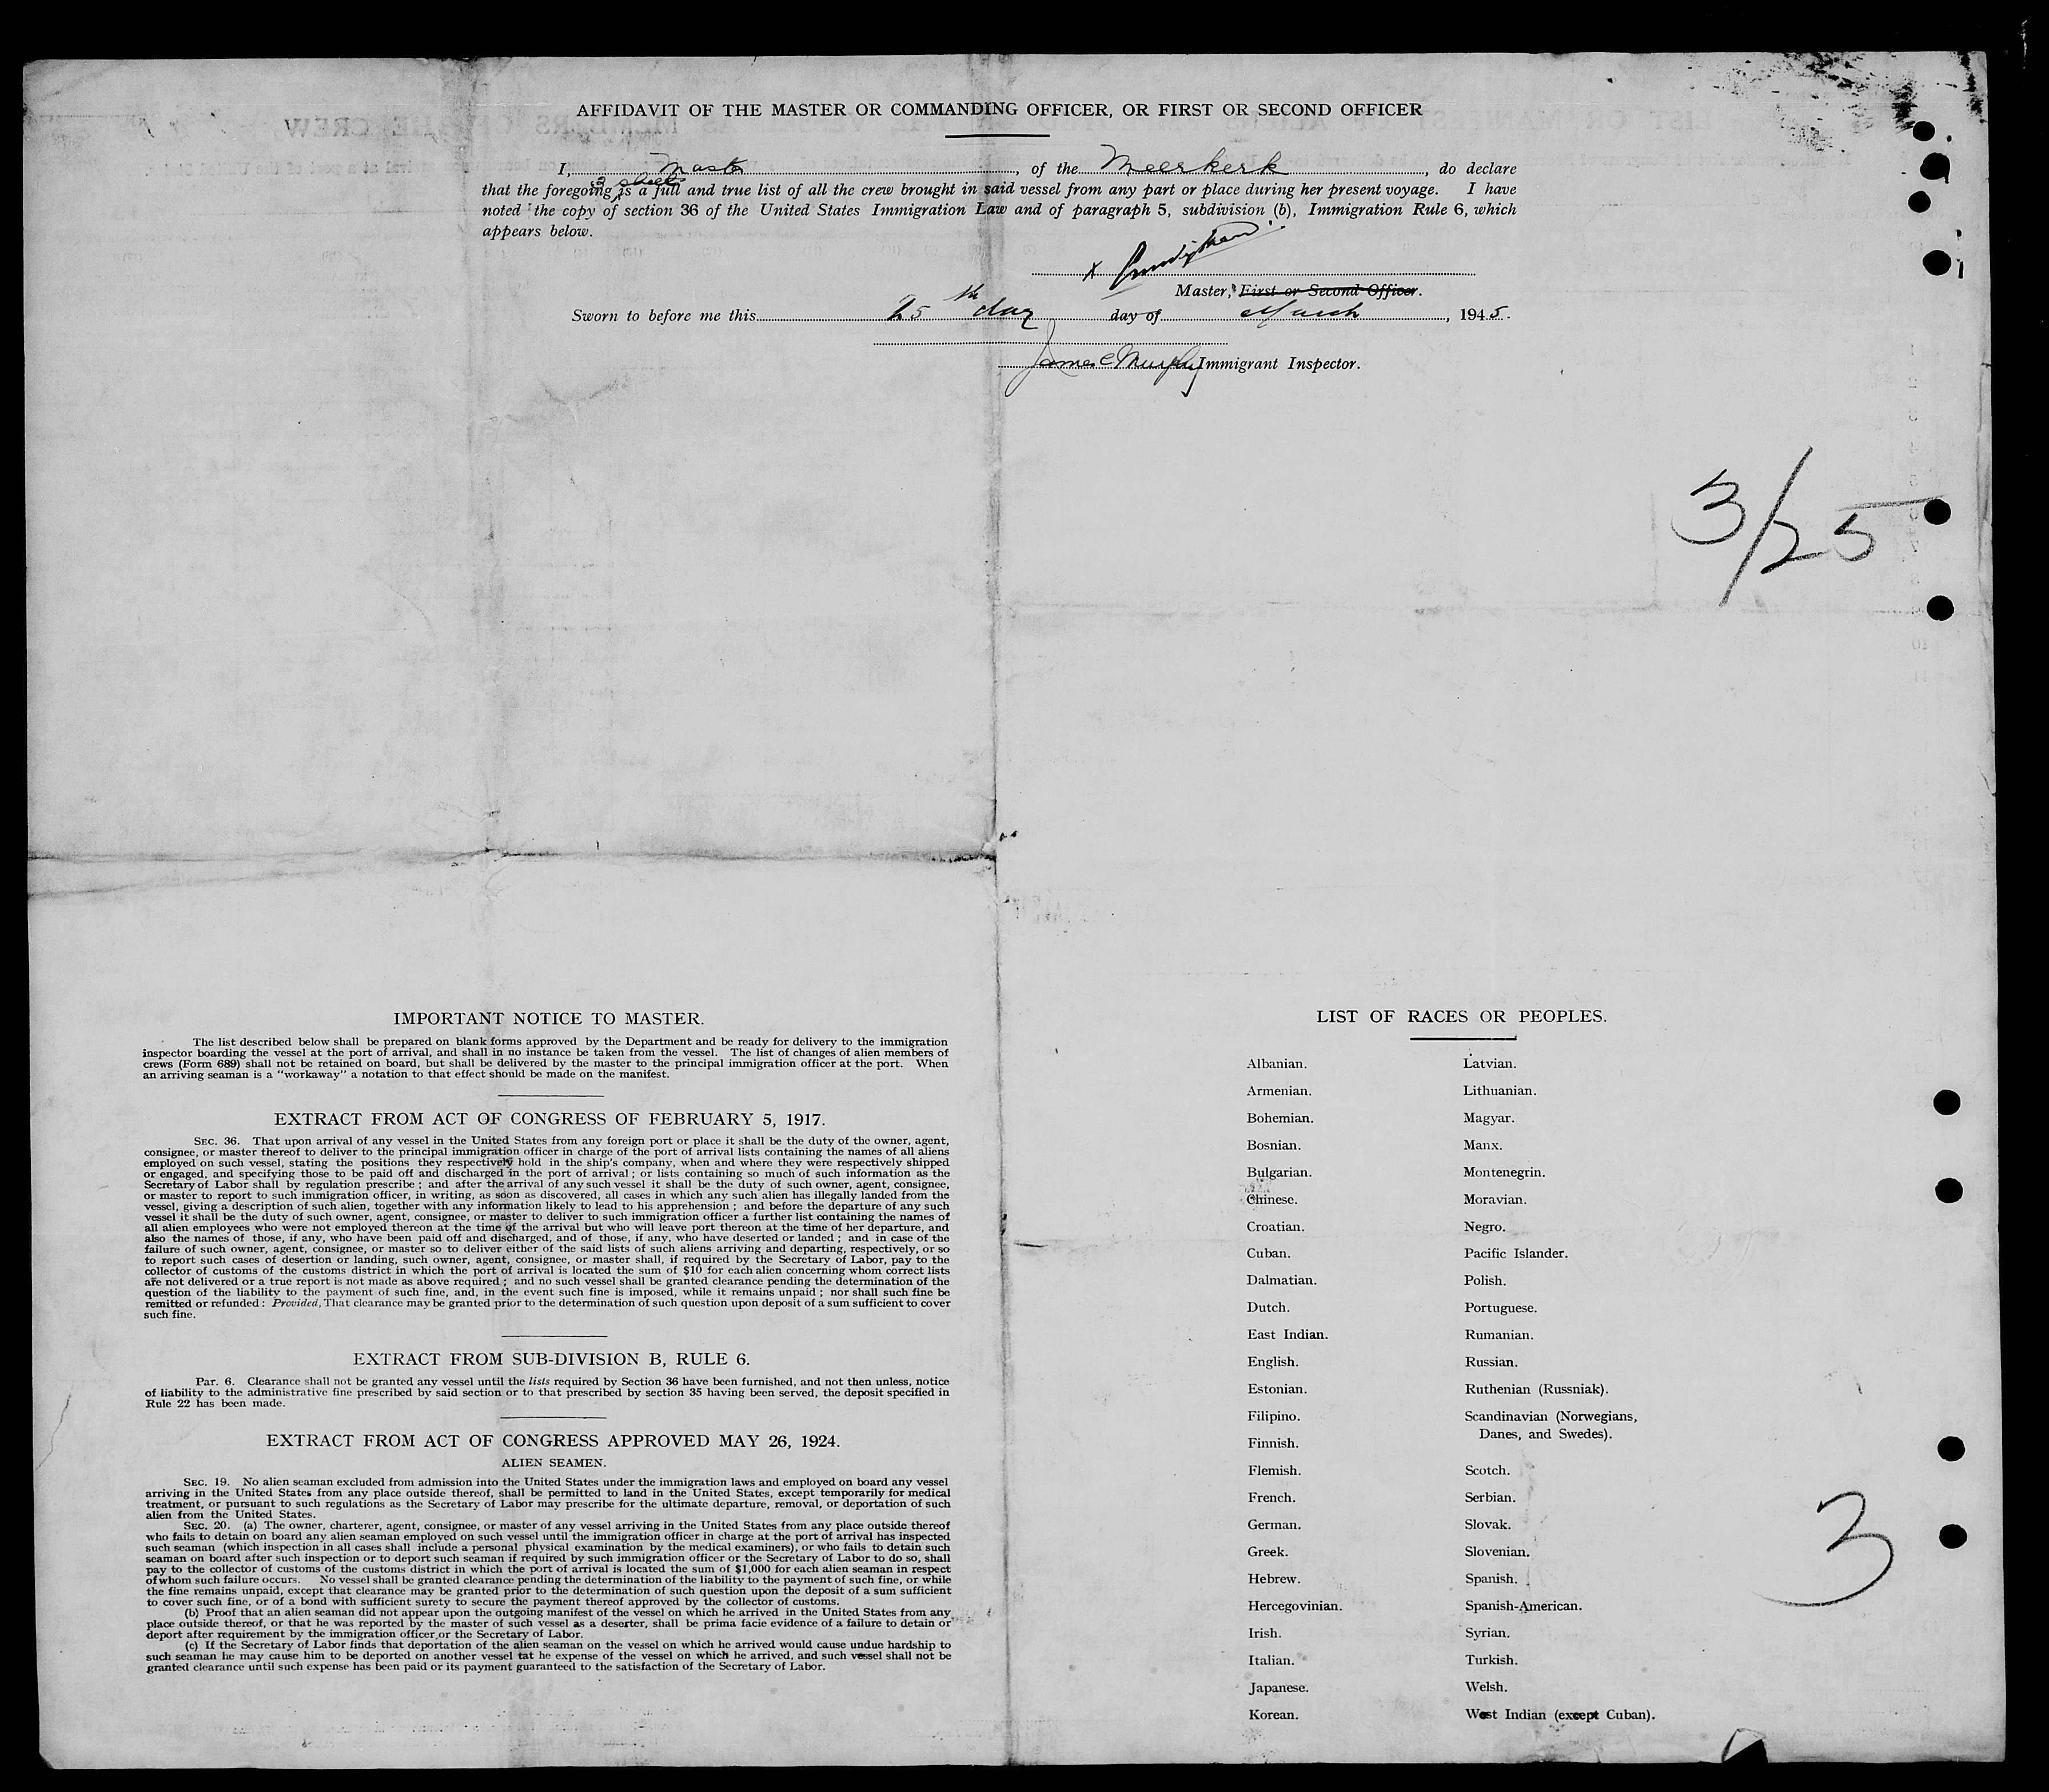 AFFIDAVIT OF THE MASTER OR COMMANDING OFFICER, OR FIRST OR SECOND OFFICER
I, Master, of the Meerkerk, do declare
3 sheets
that the foregoing is a full and true list of all the crew brought in said vessel from any part or place during her present voyage. I have
noted the copy of section 36 of the United States Immigration Law and of paragraph 5, subdivision (b), Immigration Rule 6, which
appears below.
x
Master, First or Second Officer.
Sworn to before me this 25th day day of March, 1945.
James C Murphy Immigrant Inspector.
3/25
IMPORTANT NOTICE TO MASTER.
The list described below shall be prepared on blank forms approved by the Department and be ready for delivery to the immigration
inspector boarding the vessel at the port of arrival, and shall in no instance be taken from the vessel. The list of changes of alien members of
crews (Form 689) shall not be retained on board, but shall be delivered by the master to the principal immigration officer at the port. When
an arriving seaman is a "workaway" a notation to that effect should be made on the manifest.
EXTRACT FROM ACT OF CONGRESS OF FEBRUARY 5, 1917.
SEC. 36. That upon arrival of any vessel in the United States from any foreign port or place it shall be the duty of the owner, agent,
consignee, or master thereof to deliver to the principal immigration officer in charge of the port of arrival lists containing the names of all aliens
employed on such vessel, stating the positions they respectively hold in the ship's company, when and where they were respectively shipped
or engaged, and specifying those to be paid off and discharged in the port of arrival; or lists containing so much of such information as the
Secretary of Labor shall by regulation prescribe; and after the arrival of any such vessel it shall be the duty of such owner, agent, consignee,
or master to report to such immigration officer, in writing, as soon as discovered, all cases in which any such alien has illegally landed from the
vessel, giving a description of such alien, together with any information likely to lead to his apprehension; and before the departure of any such
vessel it shall be the duty of such owner, agent, consignee, or master to deliver to such immigration officer a further list containing the names of
all alien employees who were not employed thereon at the time of the arrival but who will leave port thereon at the time of her departure, and
also the names of those, if any, who have been paid off and discharged, and of those, if any, who have deserted or landed; and in case of the
failure of such owner, agent, consignee, or master so to deliver either of the said lists of such aliens arriving and departing, respectively, or so
to report such cases of desertion or landing, such owner, agent, consignee, or master shall, if required by the Secretary of Labor, pay to the
collector of customs of the customs district in which the port of arrival is located the sum of $10 for each alien concerning whom correct lists
are not delivered or a true report is not made as above required; and no such vessel shall be granted clearance pending the determination of the
question of the liability to the payment of such fine, and, in the event such fine is imposed, while it remains unpaid; nor shall such fine be
remitted or refunded: Provided, That clearance may be granted prior to the determination of such question upon deposit of a sum sufficient to cover
such fine.
EXTRACT FROM SUB-DIVISION B, RULE 6.
PAR. 6. Clearance shall not be granted any vessel until the lists required by Section 36 have been furnished, and not then unless, notice
of liability to the administrative fine prescribed by said section or to that prescribed by section 35 having been served, the deposit specified in
Rule 22 has been made.
EXTRACT FROM ACT OF CONGRESS APPROVED MAY 26, 1924.
ALIEN SEAMEN.
SEC. 19. No alien seaman excluded from admission into the United States under the immigration laws and employed on board any vessel
arriving in the United States from any place outside thereof, shall be permitted to land in the United States, except temporarily for medical
treatment, or pursuant to such regulations as the Secretary of Labor may prescribe for the ultimate departure, removal, or deportation of such
alien from the United States.
SEC. 20. (a) The owner, charterer, agent, consignee, or master of any vessel arriving in the United States from any place outside thereof
who fails to detain on board any alien seaman employed on such vessel until the immigration officer in charge at the port of arrival has inspected
such seaman (which inspection in all cases shall include a personal physical examination by the medical examiners), or who fails to detain such
seaman on board after such inspection or to deport such seaman if required by such immigration officer or the Secretary of Labor to do so, shall
pay to the collector of customs of the customs district in which the port of arrival is located the sum of $1,000 for each alien seaman in respect
of whom such failure occurs. No vessel shall be granted clearance pending the determination of the liability to the payment of such fine, or while
the fine remains unpaid, except that clearance may be granted prior to the determination of such question upon the deposit of a sum sufficient
to cover such fine, or of a bond with sufficient surety to secure the payment thereof approved by the collector of customs.
(b) Proof that an alien seaman did not appear upon the outgoing manifest of the vessel on which he arrived in the United States from any
place outside thereof, or that he was reported by the master of such vessel as a deserter, shall be prima facie evidence of a failure to detain or
deport after requirement by the immigration officer or the Secretary of Labor.
(c) If the Secretary of Labor finds that deportation of the alien seaman on the vessel on which he arrived would cause undue hardship to
such seaman he may cause him to be deported on another vessel tat he expense of the vessel on which he arrived, and such vessel shall not be
granted clearance until such expense has been paid or its payment guaranteed to the satisfaction of the Secretary of Labor.
LIST OF RACES OR PEOPLES.
Albanian.
Armenian.
Bohemian.
Bosnian.
Bulgarian.
Chinese.
Croatian.
Cuban.
Dalmatian.
Dutch.
East Indian.
English.
Estonian.
Filipino.
Finnish.
Flemish.
French.
German.
Greek.
Hebrew.
Hercegovinian.
Irish.
Italian.
Japanese.
Korean.
Latvian.
Lithuanian.
Magyar.
Manx.
Montenegrin.
Moravian.
Negro.
Pacific Islander.
Polish.
Portuguese.
Rumanian.
Russian.
Ruthenian (Russniak).
Scandinavian (Norwegians,
Danes, and Swedes).
Scotch.
Serbian.
Slovak.
Slovenian.
Spanish.
Spanish-American.
Syrian.
Turkish.
Welsh.
West Indian (except Cuban).
3